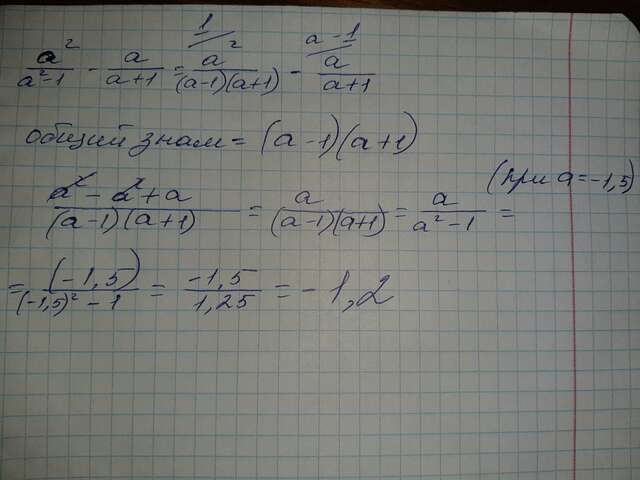 a²/(a²-1) - a/(a+1) = 1// a²/((a-1)(a+1)) - a-1// a/(a+1)
общий знам = (a-1)(a+1)
(a² - a² + a)/((a-1)(a+1)) = a/((a-1)(a+1)) = a/(a²-1) = (при a=-1,5)
= (-1,5)/((-1,5)²-1) = -1,5/1,25 = -1,2